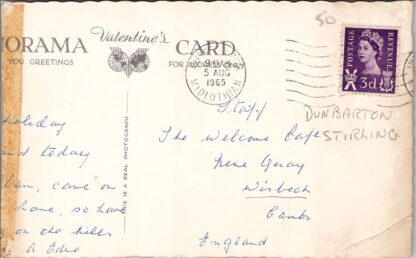 50
NORAMA
Valentine's
CARD
YOU GREETINGS
FOR ADDRESS ONLY
THIS IS A REAL PHOTOGRAPH
5 AUG
1965
MIDLOTHIAN
POSTAGE
REVENUE
3d
DUNBARTON
STIRLING
holiday
and today
came on
home, so have
on the hills
Staff
The Welcome Cafe
Wisbech
Cambs
England